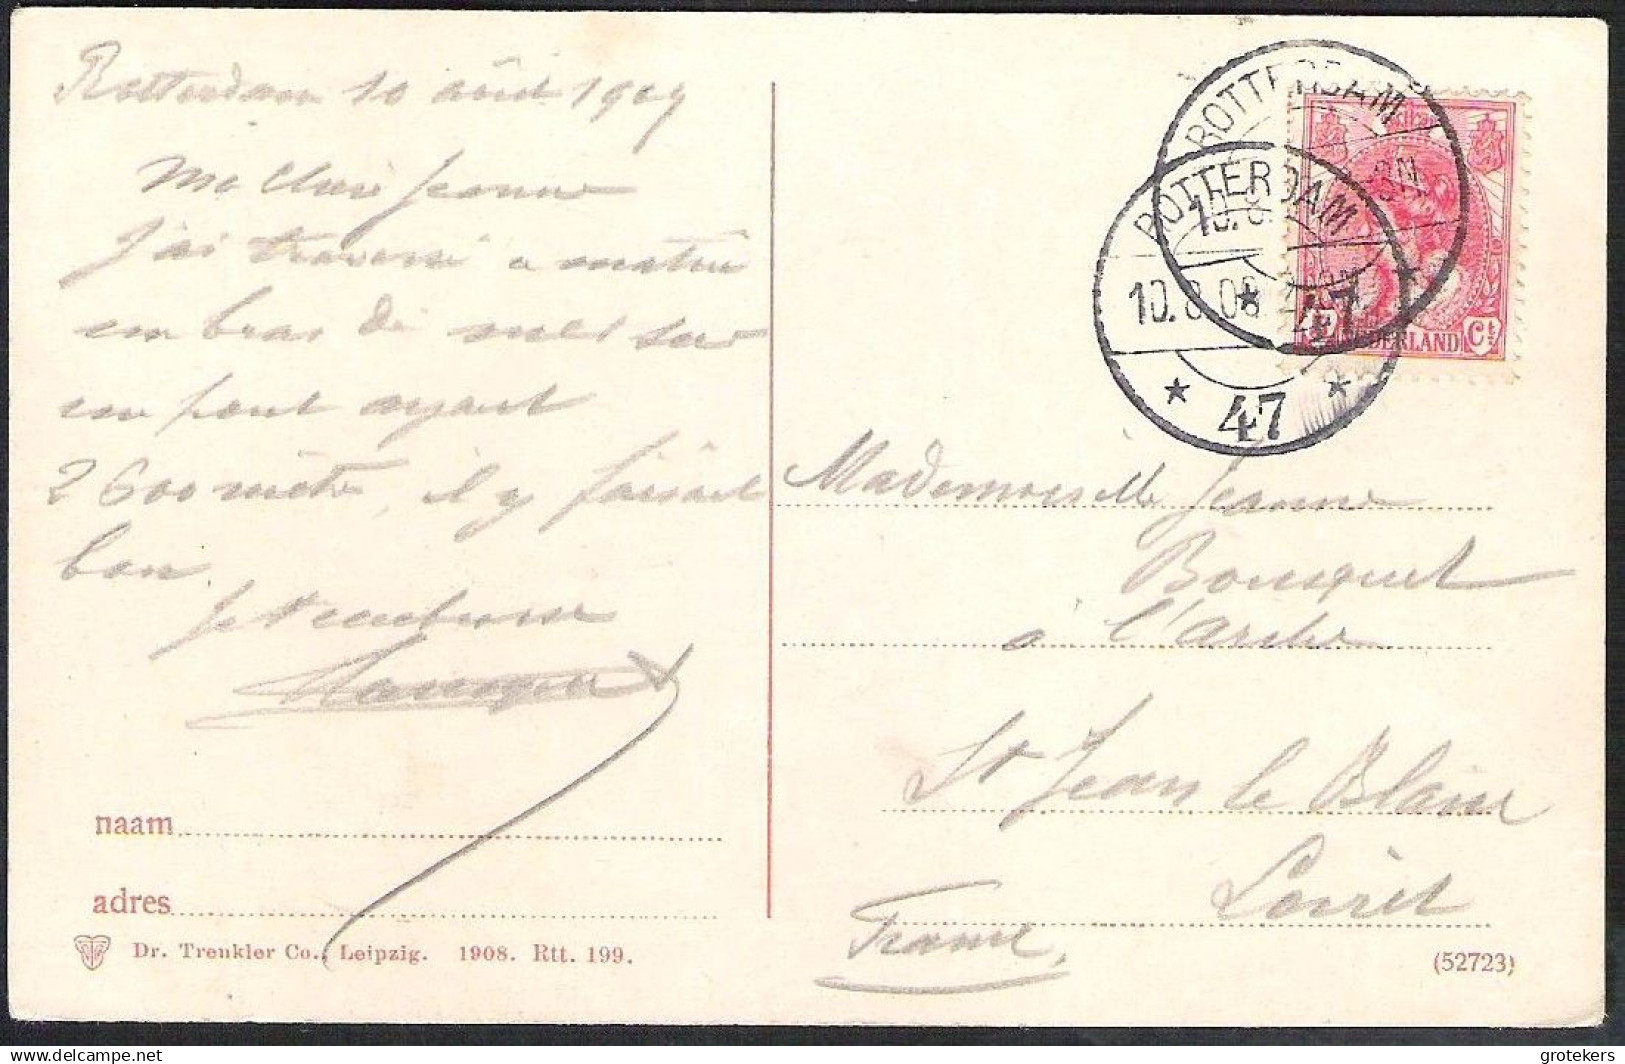 Rotterdam 10 août 1909
Ma Chère Jeanne
J'ai traversé ce matin
un bras de mer sur
un pont ayant
2600 mètre, il y faisait
bon.
Je t'embrasse
naam
adres
Dr. Trenkler Co., Leipzig. 1908. Rtt. 199.
ROTTERDAM
10.8.
47
ROTTERDAM
10.8.09
47
NEDERLAND
Ct
Mademoiselle Jeanne
Bousquet
à l'arche
St Jean le Blanc
Loiret
France
(52723)
grotekers
www.delcampe.net